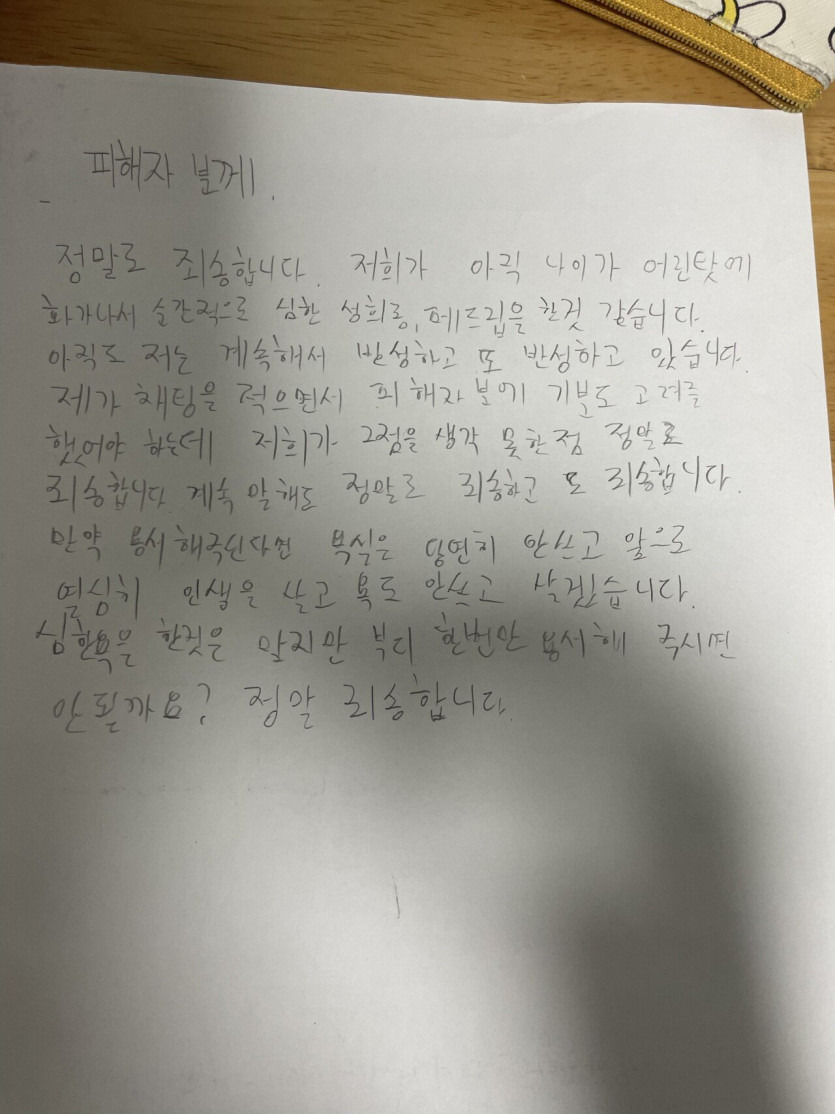 피해자 분께
정말로 죄송합니다. 저희가 아직 나이가 어린탓에
화가나서 순간적으로 심한 성희롱, 패드립을 한것 같습니다.
아직도 저는 계속해서 반성하고 또 반성하고 있습니다.
제가 채팅을 적으면서 피해자 분에 기분도 고려를
했어야 하는데 저희가 그점을 생각 못한점 정말로
죄송합니다 계속 말해도 정말로 죄송하고 또 죄송합니다.
만약 용서해주신다면 복식은 당연히 안쓰고 앞으로
열심히 인생을 살고 욕도 안쓰고 살겠습니다.
심한욕을 한것은 알지만 부디 한번만 용서해 주시면
안될까요? 정말 죄송합니다.